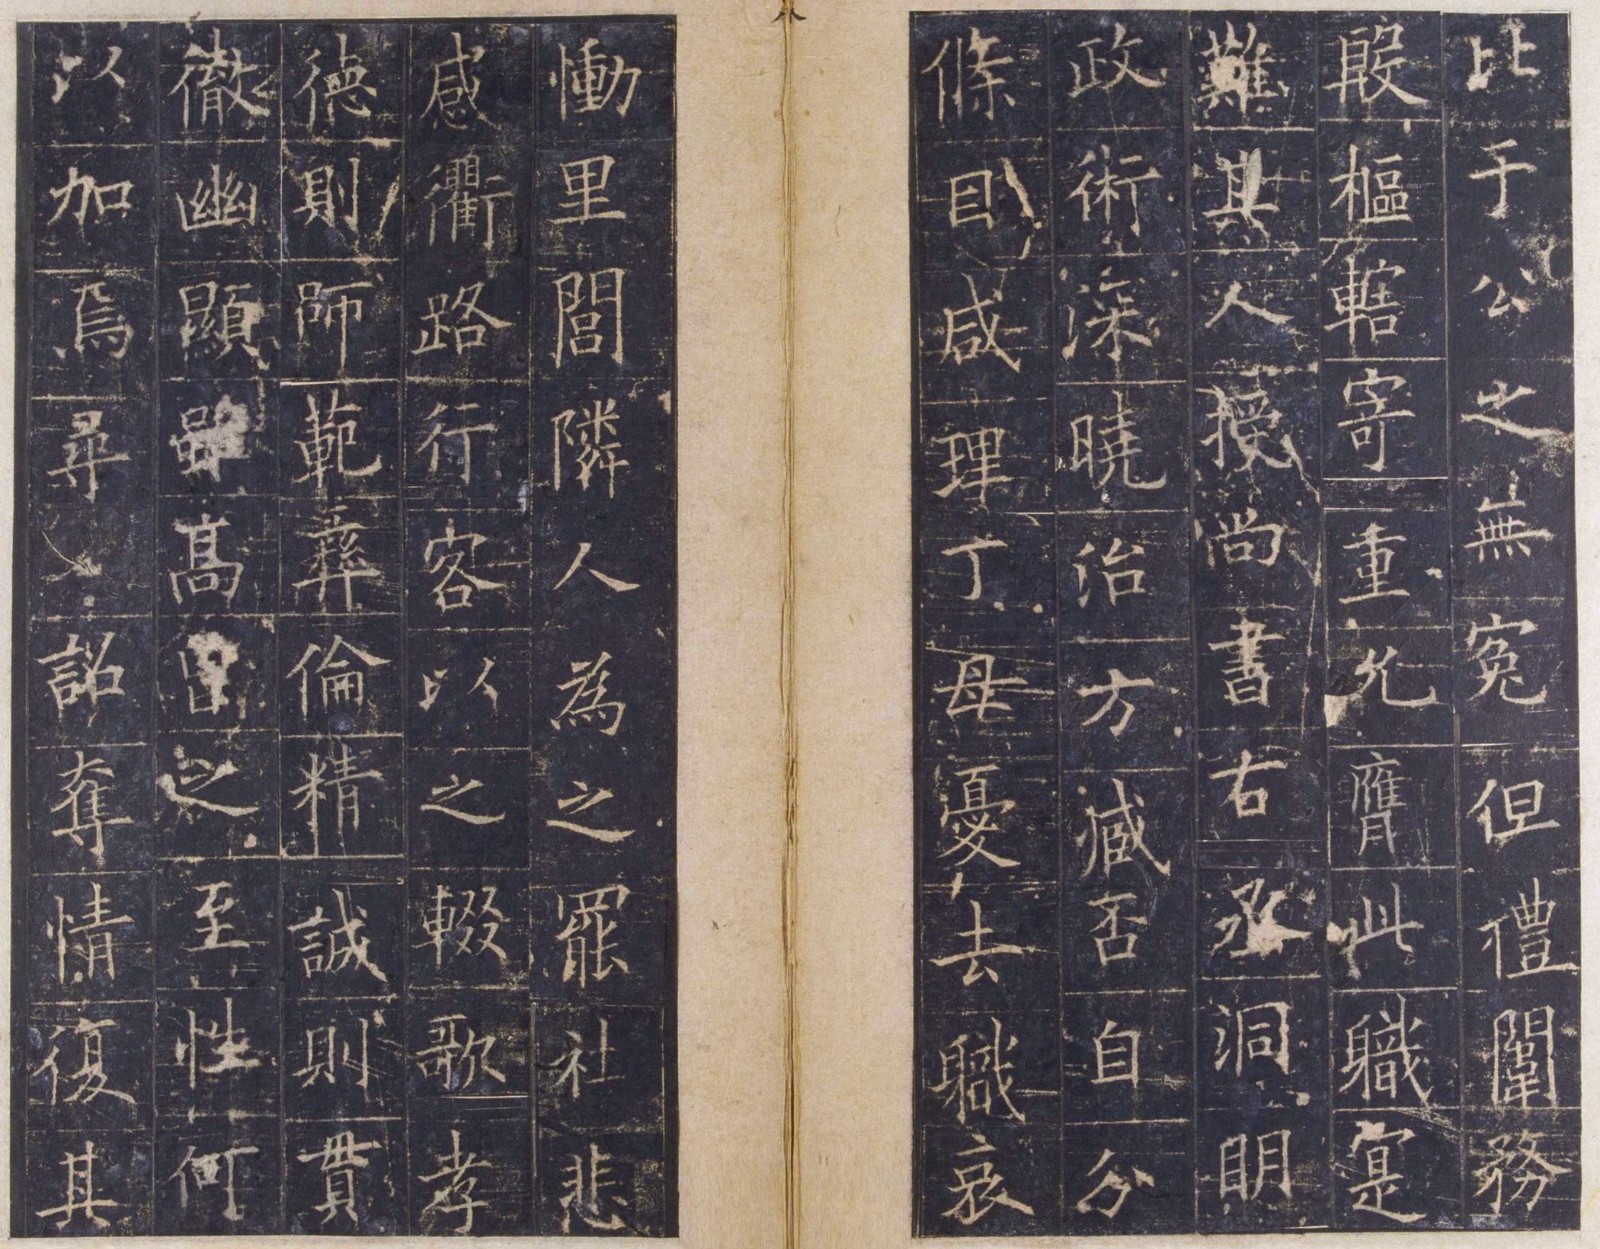 比于公之無冤但禮闈務
殷樞轄寄重允膺此職寔
難其人授尚書右丞洞明
政術深曉治方臧否自分
條目咸理丁母憂去職哀
慟里閭隣人為之罷社悲
感衢路行客以之輟歌孝
德則師範彝倫精誠則貫
徹幽顯雖高曾之至性何
以加焉尋
詔奪情復其